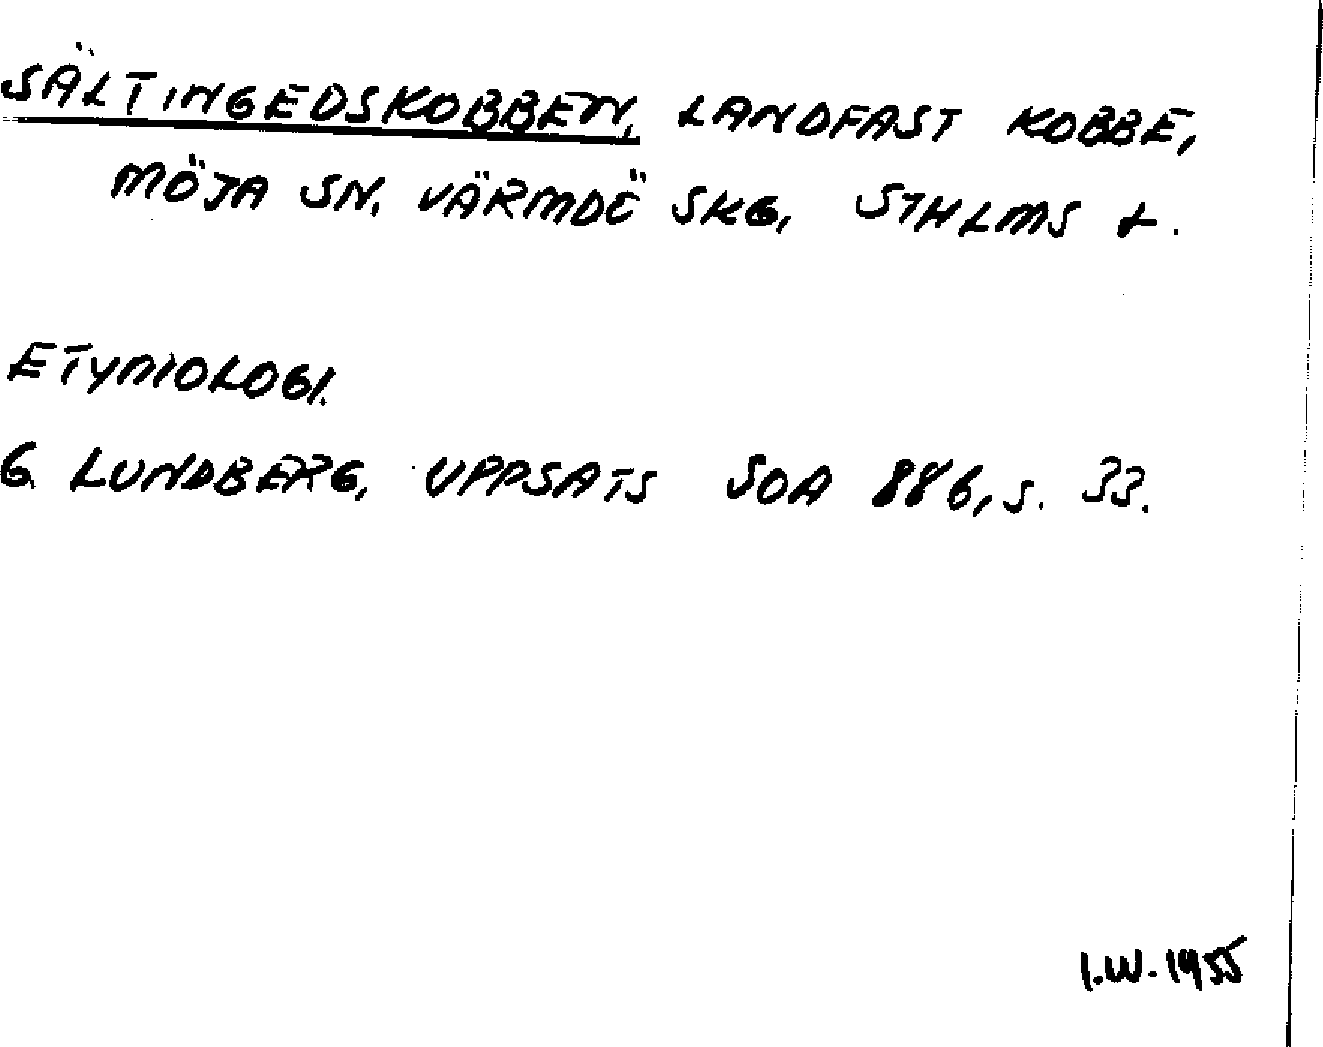 SÄLTINGEDSKOBBEN, LANDFAST KOBBE,
MÖJA SN. VÄRMDÖ SKG, STHLMS L.
ETYMOLOGI.
G. LUNDBERG, UPPSATS SOA 886, S. 33.
I.W. 1955